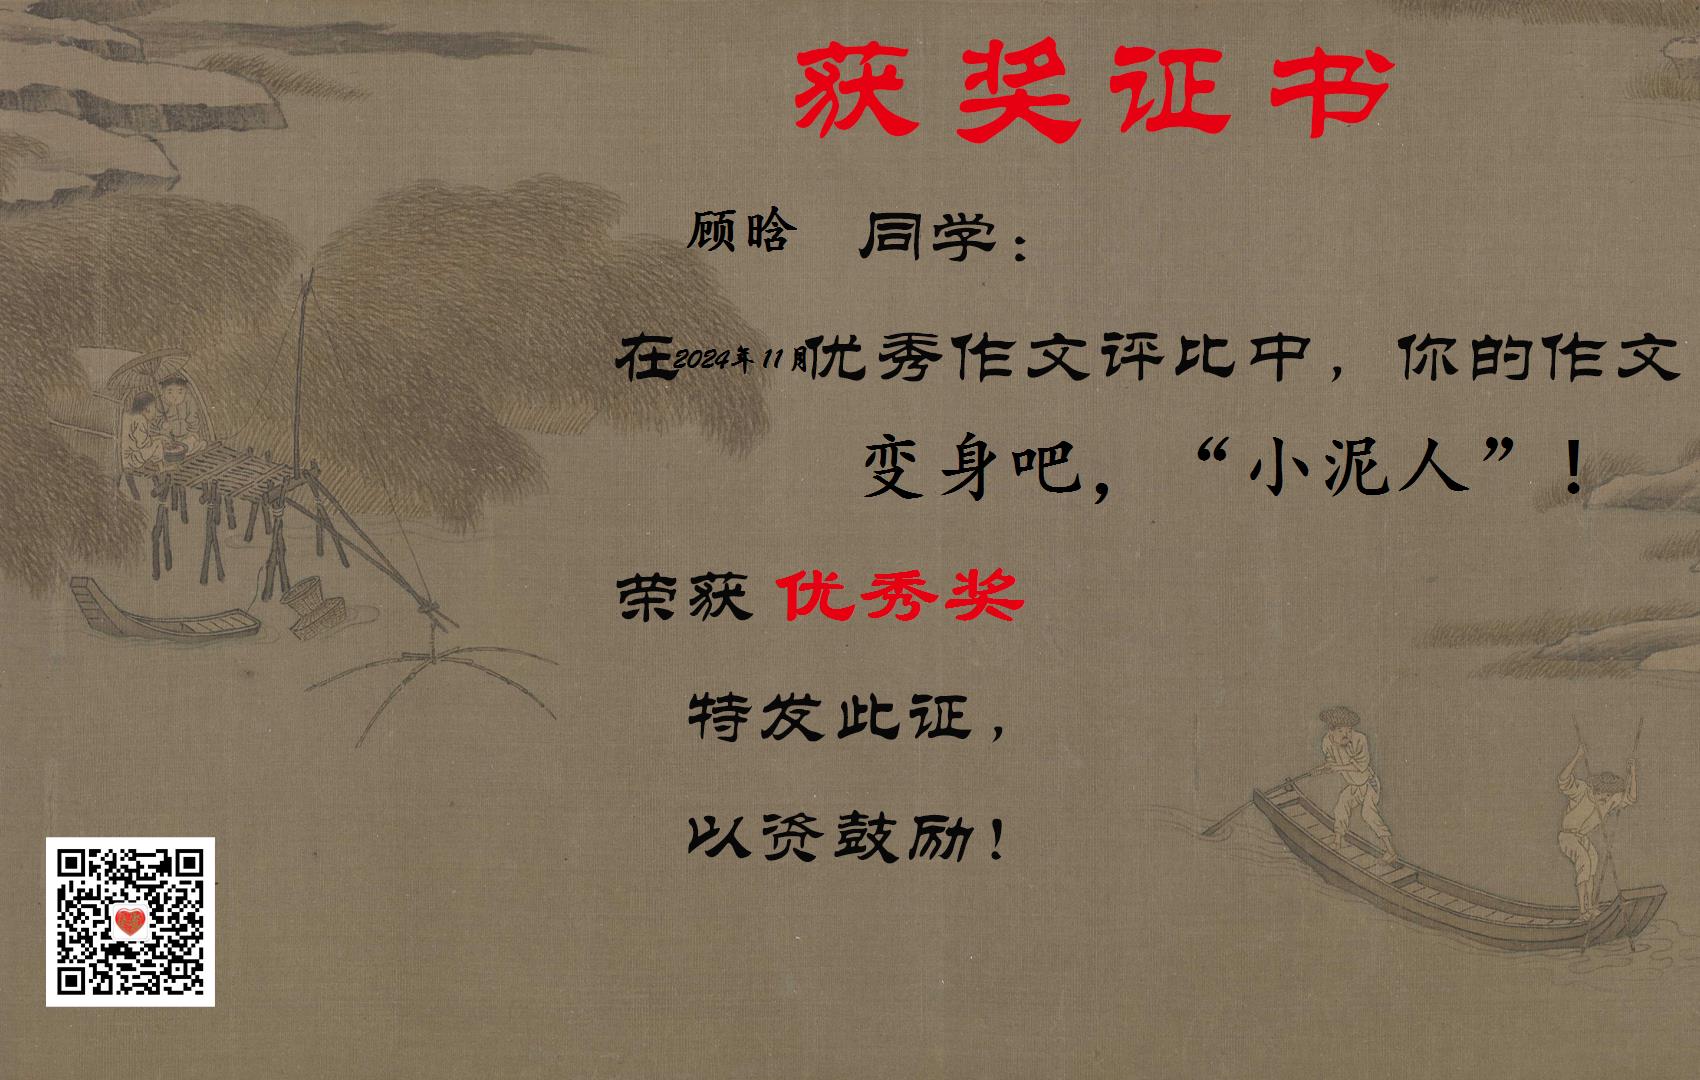 获奖证书
顾晗 同学：
在2024年11月优秀作文评比中，你的作文
变身吧，“小泥人”！
荣获 优秀奖
特发此证，
以资鼓励！